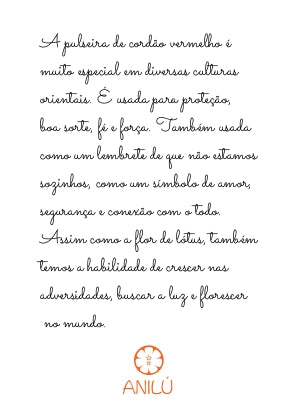 A pulseira de cordão vermelho é
muito especial em diversas culturas
orientais. É usada para proteção,
boa sorte, fé e força. Também usada
como um lembrete de que não estamos
sozinhos, como um símbolo de amor,
segurança e conexão com o todo.
Assim como a flor de lótus, também
temos a habilidade de crescer nas
adversidades, buscar a luz e florescer
no mundo.
ANILÚ